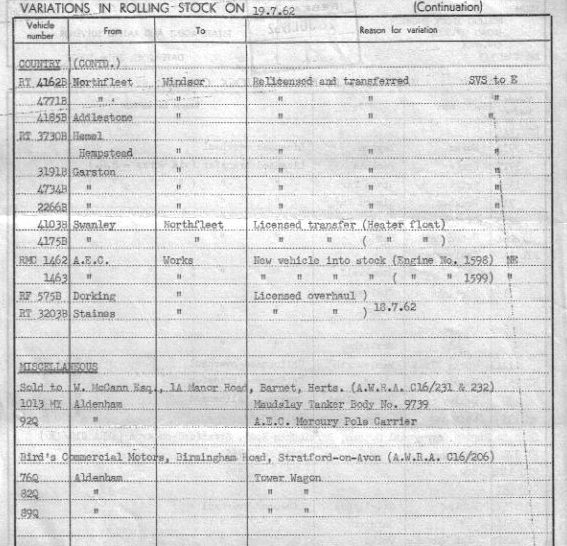 VARIATIONS IN ROLLING-STOCK ON 19.7.62 (Continuation)
Vehicle number From To Reason for variation
COUNTRY (CONTD.)
RT 4162B Northfleet Windsor Relicensed and transferred SVS to E
4771B " " " " "
4185B Addlestone " " " "
RT 3730B Hemel
Hempstead " " " "
3191B Garston " " " "
4734B " " " " "
2266B " " " " "
4103B Swanley Northfleet Licensed transfer (Heater float)
4175B " " " " ( " " )
RMC 1462 A.E.C. Works New vehicle into stock (Engine No. 1598) NE
1463 " " " " " " ( " " 1599) "
RF 575B Dorking " Licensed overhaul )
RT 3203B Staines " " " ) 18.7.62
MISCELLANEOUS
Sold to W. McCann Esq., 1A Manor Road, Barnet, Herts. (A.W.R.A. C16/231 & 232)
1013 MY Aldenham Maudslay Tanker Body No. 9739
92Q " A.E.C. Mercury Pole Carrier
Bird's Commercial Motors, Birmingham Road, Stratford-on-Avon (A.W.R.A. C16/206)
76Q Aldenham Tower Wagon
82Q " " "
89Q " " "